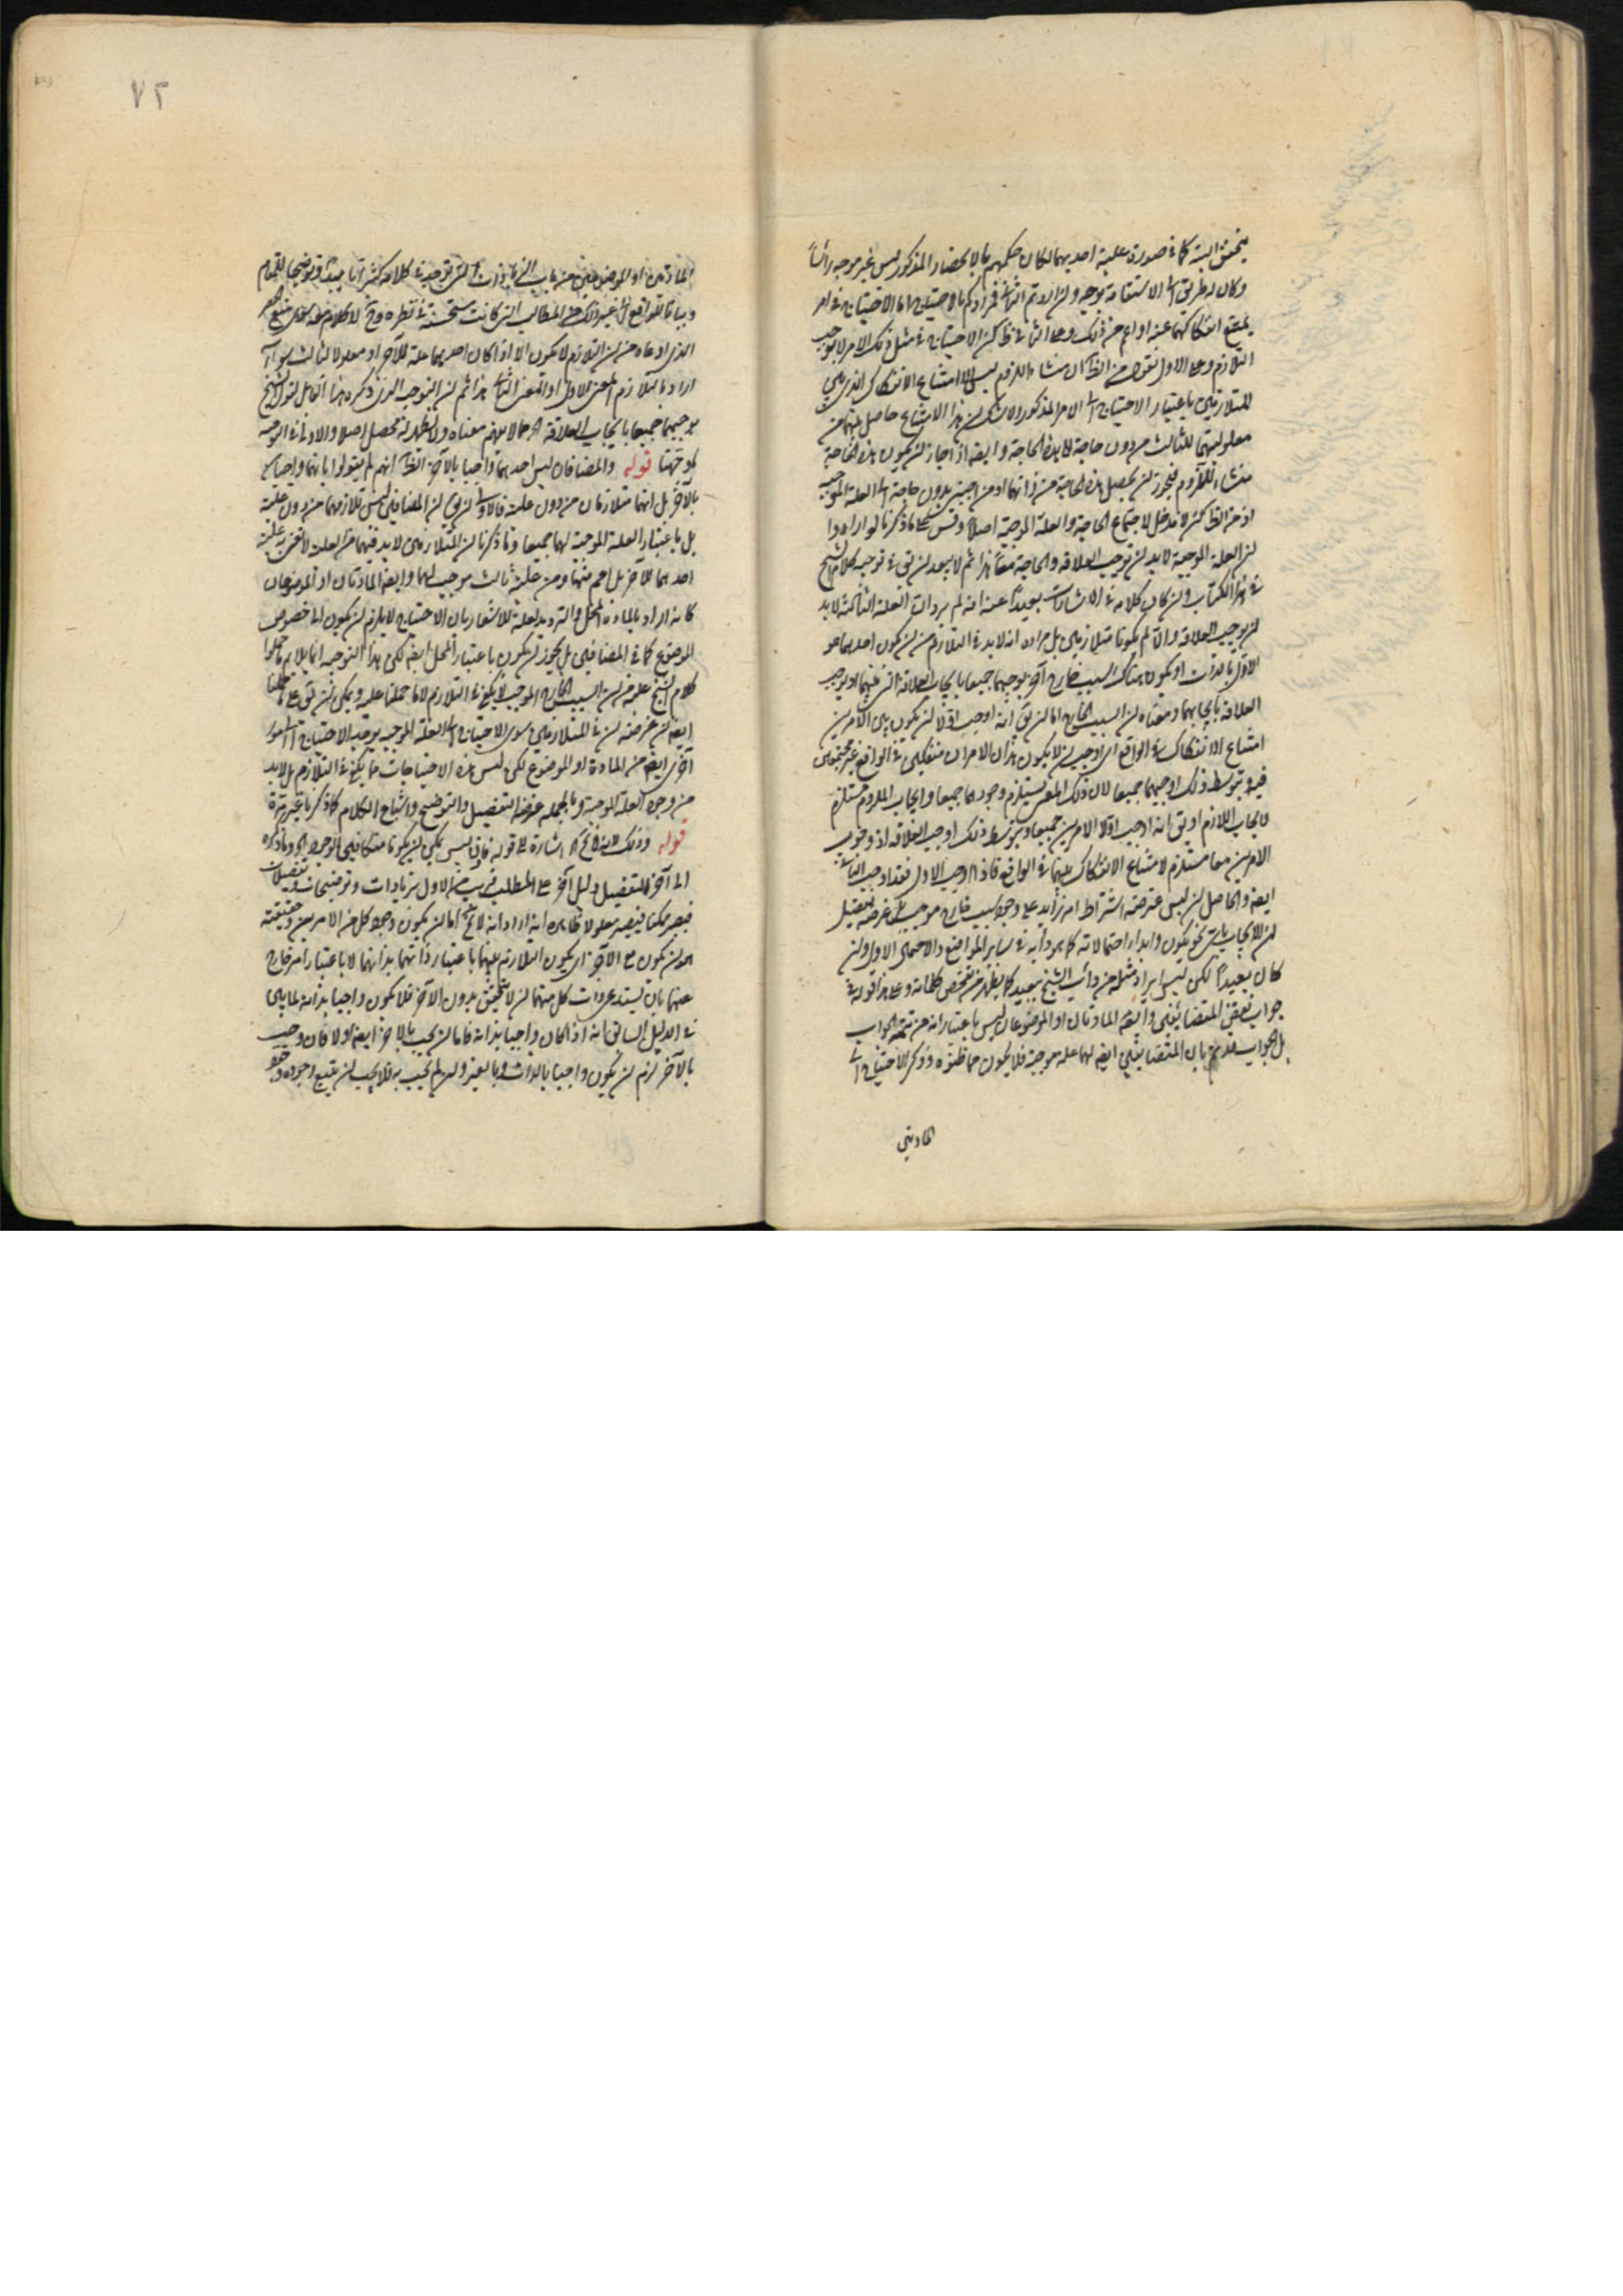 يتحقق البتة كما في صورة علية احديهما لكان حكمهم بالانحصار المذكور ليس غير موجه رأسا
وكان له طريق الى الاستقامة بوجه ولن اردتم الثاني فمرادكم بالاحتياج اما الاحتياج في امر
يمتنع انفكاكهما عنه او اعم من ذلك وعلى الثاني فظ لن الاحتياج في مثل ذلك الامر لا يوجب
التلازم وعلى الاول نقول من الظ ان منشاء اللزوم ليس الا امتناع الانفكاك الذي بين
المتلازمين باعتبار الاحتياج الى الامر المذكور ولا شك لن هذا الامتناع حاصل بينهما من
معلوليتهما للثالث من دون حاجة لا بهذه الحاجة وايضه اذا جاز لن يكون هذه الحاجة
منشاء للزوم فيجوز لن يحصل هذه الحاجة من ذاتهما او من اجنبي بدون حاجة الى العلة الموجبه
اذ من الظ لنه لا مدخل لاجتماع الحاجة والعلة الموجبة اصلا وقس على ما ذكرنا لو ارادوا
لن العلة الموجبة لا بد لن توجب العلاقة والحاجة معا هذا ثم لا يبعد لن يق في توجيه كلام الشيخ
في هذا الكتاب ولن كان كلامه في الاشارات بعيدا عنه انه لم يرد ان العلة الثالثة لا بد
لن يوجب العلاقة والا لم يكونا متلازمين بل مراده انه لا بد في التلازم من لن يكون احديهما هو
الاول بالذات او يكون هناك السبب خارج آخر يوجبهما جميعا بايجاب العلاقة التي بينهما او يوجب
العلاقة بايجابهما ومعناه لن السبب الخارج اما لن يق انه اوجب اولا لن يكون بين الامرين
امتناع الانفكاك في الواقع اي اوجب لن لا يكون هذان الامران منفكين في الواقع غير مجتمعين
فيه وبتوسط ذلك اوجبهما جميعا لان ذلك المعنى يستلزم وجودهما جميعا وايجاب الملزوم مستلزم
لايجاب اللازم او يق انه اوجب اولا الامرين جميعا وبتوسط ذلك اوجب العلاقة اذ وجوب
الامرين معا مستلزم لامتناع الانفكاك بينهما في الواقع فاذا اوجب الاول فقد اوجب الثاني
ايضه والحاصل لن ليس غرضه اشتراط امر زايد على وجود سبب خارج موجب بل غرضه تفصيل
لن الايجاب باي نحو يكون وابداء احتمالاته كما هو دأبه في ساير المواضع والاحتمال الاول ولن
كان بعيدا لكن ليس ايراد مثله من دأب الشيخ ببعيد كما يظهر من تفحص كلماته وعلى هذا قوله في
جواب نقض المتضايفين وايضه المادتان او الموضوعان ليس باعتبار انه من تتمة الجواب
بل الجواب قد تم بان المتضايفين ايضه لهما علة موجبة فلا يكون مما ظنوه وذكر الاحتياج الى
المادتين
٧٢
المادتين او الموضوعين من باب الزيادات التي توجد في كلامه كثيرا تاييدا وتوضيحا للمقام
وبيانا للواقع الى غير ذلك من المطالب التي كانت مستحسنة في نظره وح لا كلام معه سوى منع الحصر
الذي ادعاه من لن التلازم لا يكون الا اذا كان احديهما علة للآخر او معلولا لثالث سواء
اراد بالتلازم المعنى الاول او المعنى الثاني هذا ثم لن التوجيه الذي ذكره هذا القايل لقول الشيخ
يوجبهما جميعا بايجاب العلاقة مما لا يفهم معناه ولا يظهر له محصل اصلا والاولى في التوجيه
ما وجهنا قوله والمضافان ليس احديهما واجبا بالآخر الظ انهم لم يقولوا بانهما واجبان
بالآخر بل انهما متلازمان من دون علية فالاولى لن يق لن المضافين ليس تلازمهما من دون علية
بل باعتبار العلة الموجبة لهما جميعا وما ذكرنا لن المتلازمين لا بد فيهما من العلية لا نعني به علية
احديهما للآخر بل اعم منها ومن علية ثالث موجب لهما وايضه المادتان او الموضوعان
كانه اراد بالمادة المحل والترديد لعله للاشعار بان الاحتياج لا يلزم لن يكون الى خصوص
الموضوع كما في المضافين بل يجوز لن يكون باعتبار المحل ايضه لكن هذا التوجيه انما يلايم ما حملوا
كلام الشيخ عليه من لن السبب الخارج الموجب لا يكفي في التلازم لا ما حملنا عليه ويمكن لن يق على ما حملنا
ايضه لن غرضه لن في المتلازمين سوى الاحتياج الى العلة الموجبة يوجد الاحتياج الى امور
اخرى ايضه من المادة او الموضوع لكن ليس هذه الاحتياجات مما يكفي في التلازم بل لا بد
من وجود العلة الموجبة وبالجملة غرضه التفصيل والتوضيح واشباع الكلام كما ذكرنا غير مرة
قوله وذلك لانه لا يخ اشارة الى قوله فاذن ليس يمكن لن يكونا متكافيي الوجود وما ذكره
الى آخر التفصيل دليل آخر على المطلب غير بيانه الاول بزيادات وتوضيحات وتفصيلات
فيصير ممكنا فيصير معلولا ظاهره انه اراد انه لا يخ اما لن يكون وجود كل من الامرين وحقيقته
هو لن يكون مع الآخر اي يكون التلازم بينهما باعتبار ذاتهما بذاتهما لا باعتبار امر خارج
عنهما بان يستدعي ذات كل منهما لن لا يتحقق بدون الآخر فلا يكون واجبا بذاته لما بين
في الدليل السابق انه اذا كان واجبا بذاته فاما لن يجب بالآخر ايضه او لا فان وجب
بالآخر لزم لن يكون واجبا بالذات وبالغير ولن لم يجب به فلا يجب لن يتبع وجوده وجود